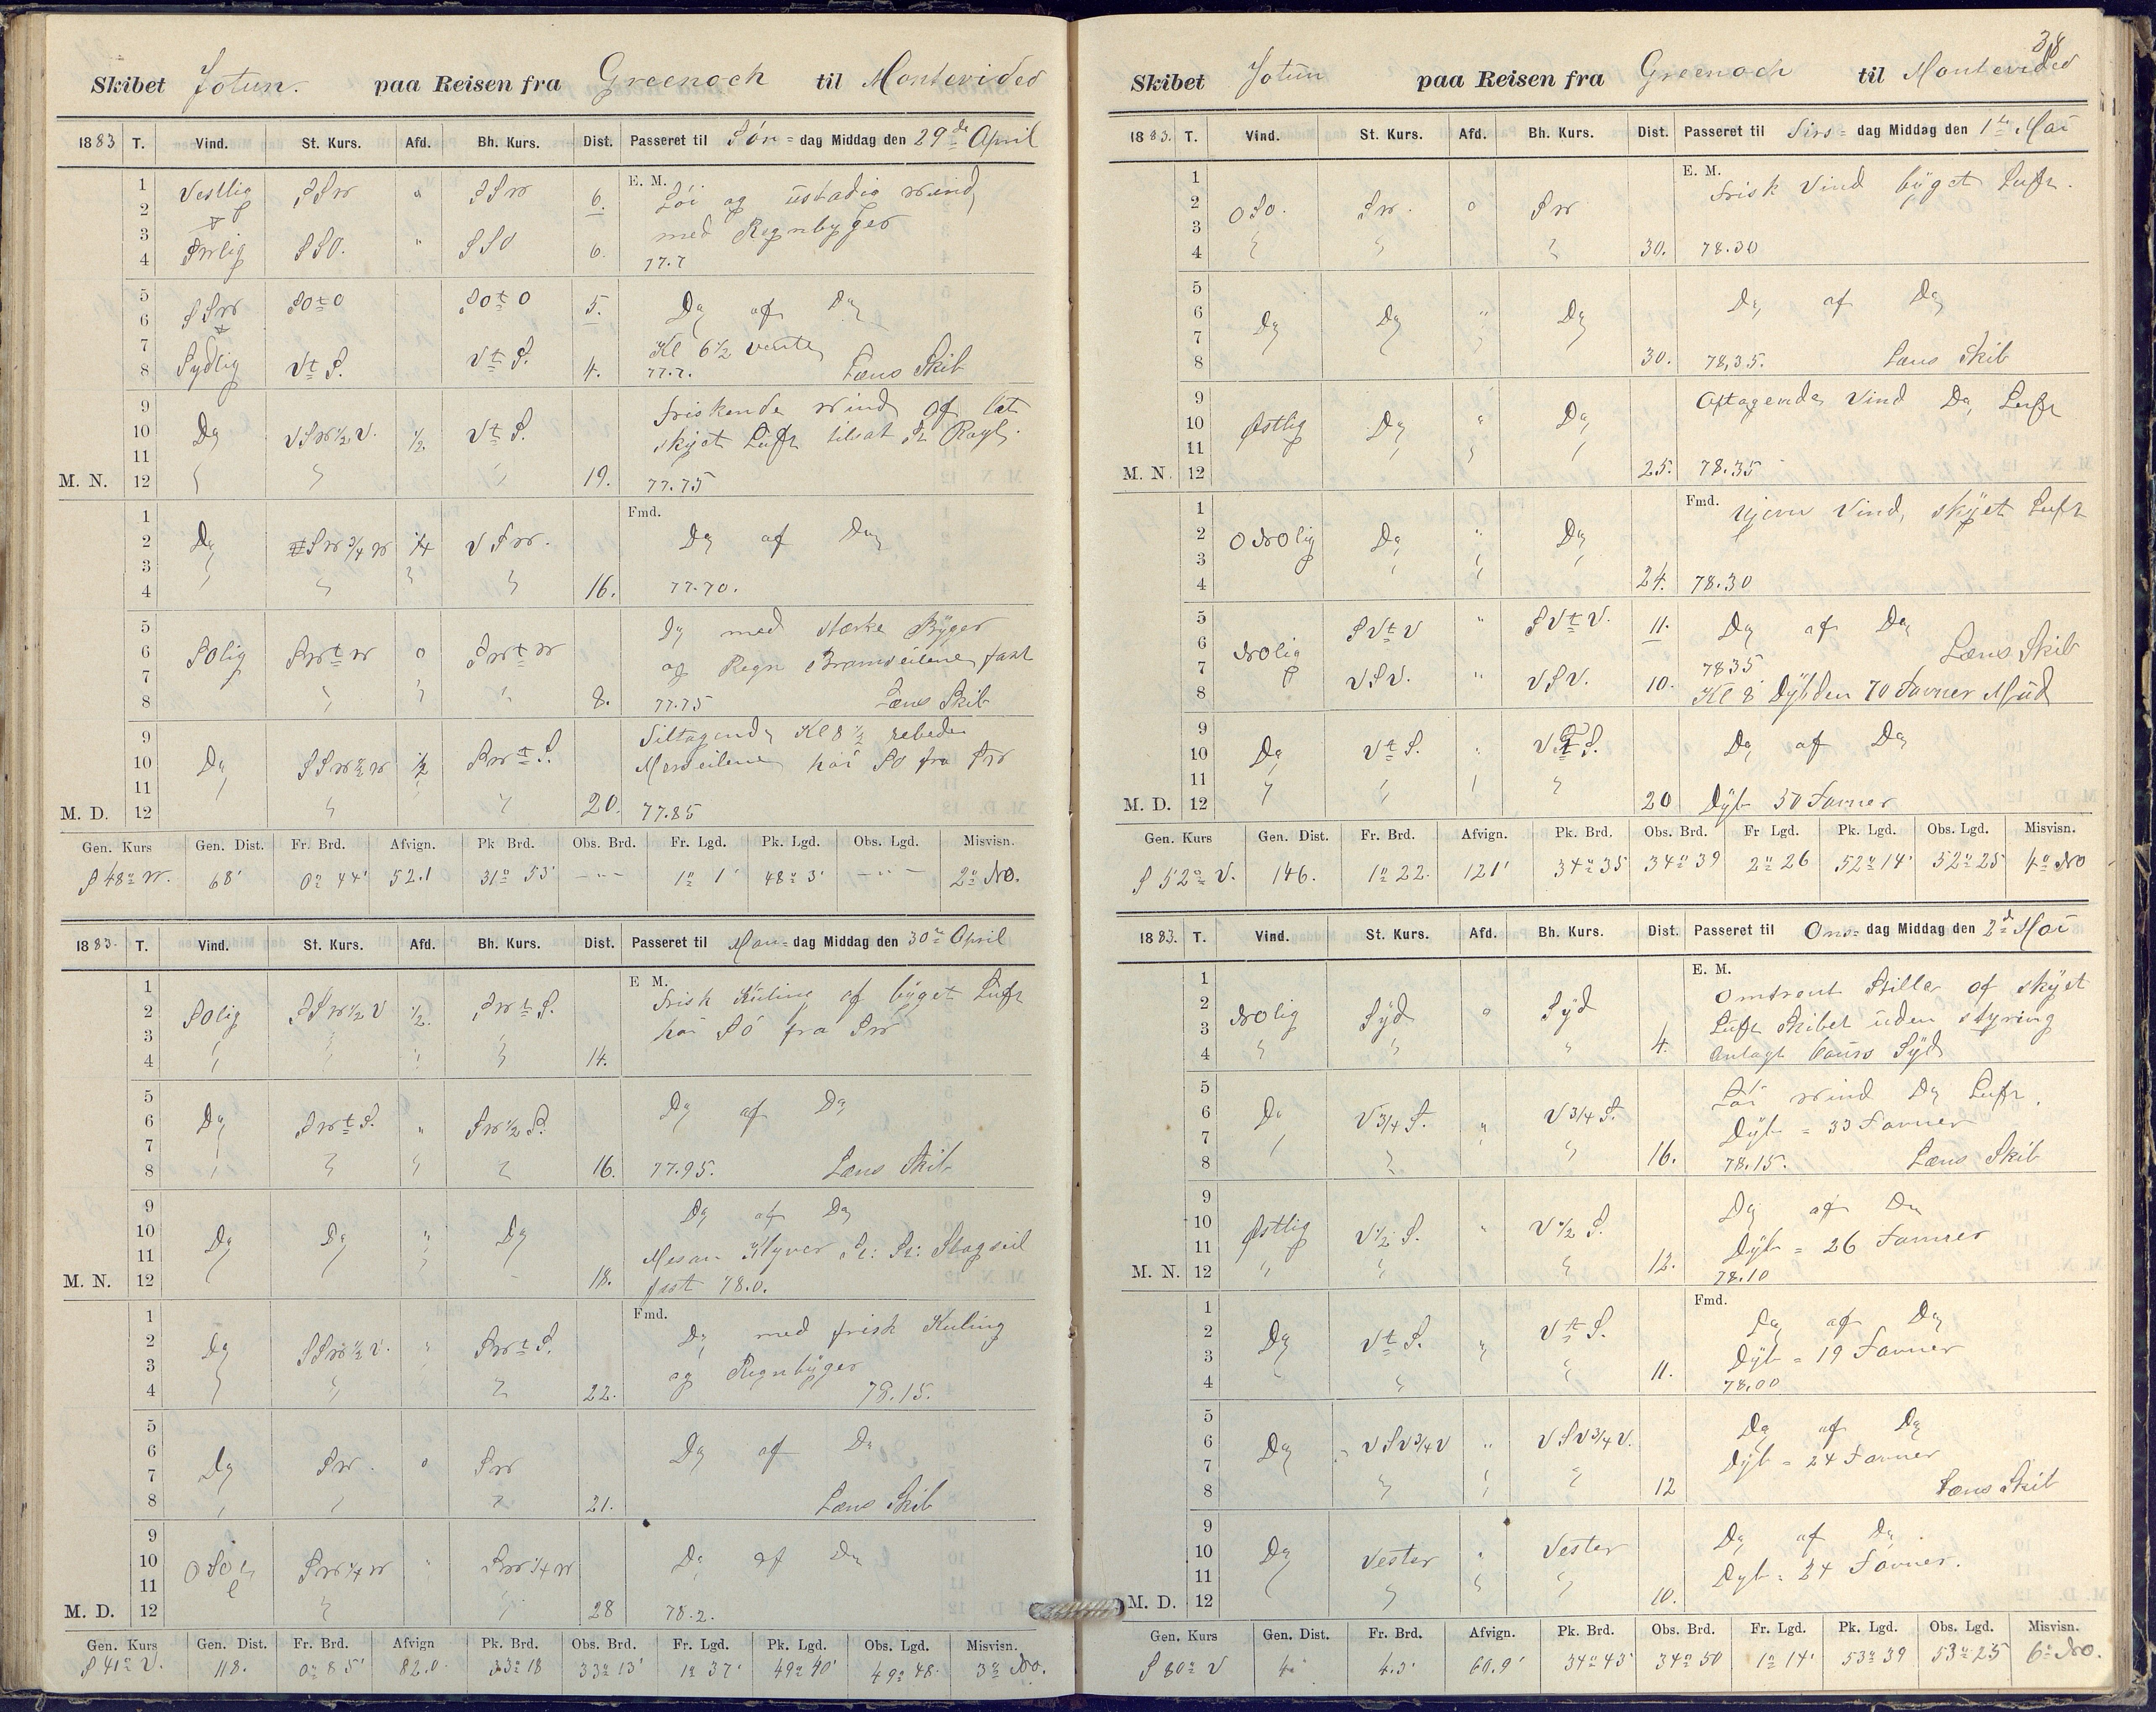 Skibet Jotun. paa Reisen fra Greenock til Montevideo
1883 T. Vind. St. Kurs. Afd. Bh. Kurs. Dist. Passeret til Søn= dag Middag den 29de April
1 Vestlig SSW " SSW 6. E. M. Löi og üstadig wind
2 med Regnbyger
3
4 SSO. " SSO 6. 77.7
5 SSW SOtO SOtO 5. Do af Do
6
7 Kl 6½ vente
8 Sydlig VtS. VtS. 4. 77.7. Læns Skib
9 friskende wind af let
10 Do VSW½V. ½ VtS. skyet Luft tilsat
11
M. N. 12 19. 77.75
1 Fmd.
2 Do SW¾W ¼ VSW. Do af Do
3
4 16. 77.70.
5 Do med stærke Byger
6 SOlig SWtW 0 SWtW og Regn Bramseilene fast
7
8 8. 77.75 Læns Skib
9 Tiltagende Kl 8½ rebede
10 Do SSW½W ½ SWtS. Merseilene höi SO fra SW
11
M. D. 12 20. 77.85
Gen. Kurs Gen. Dist. Fr. Brd. Afvign. Pk Brd. Obs. Brd. Fr. Lgd. Pk. Lgd. Obs. Lgd. Misvisn.
S 48° W. 68' 0° 44' 52.1 31° 53' -"- 1° 1' 48° 3' -"- 2° NO.
1883. T. Vind. St. Kurs. Afd. Bh. Kurs. Dist. Passeret til Man= dag Middag den 30te April
1 E M. Frisk Kuling af byget Luft
2 SOlig SSW½V ½. SWtS. höi SÖ fra SW
3
4 14.
5 Do af Do
6 Do SWtS. " SW½S.
7
8 16. 77.95. Læns Skib
9 Do af Do
10 Do Do " Do
11 Mesan Klyver St: St: Stagseil
M. N. 12 18. fast 78.0.
1 Fmd.
2 Do SSW½V. " SWtS. Do med frisk Kuling
3 og Regnbyger
4 22. 78.15.
5
6 Do SW. 0 SW Do af Do
7
8 21. Læns Skib
9
10 OSO SW¼W " SW¼W Do af Do
11
M. D. 12 28 78.2.
Gen. Kurs Gen. Dist. Fr. Brd. Afvign Pk. Brd. Obs. Brd. Fr. Lgd. Pk. Lgd. Obs. Lgd. Misvisn.
S 41° V. 118. 0° 85' 82.0. 33° 18 33° 13' 1° 37' 49° 40' 49° 48. 3° NO.
38
Skibet Jotun paa Reisen fra Greenock til Montevideo
1883. T. Vind. St. Kurs. Afd. Bh. Kurs. Dist. Passeret til Tirs= dag Middag den 1te Mai
1 E. M. Frisk Vind byget Luft.
2 OSO. SW. 0 SW
3
4 30. 78.30
5 Do af Do
6 Do Do " Do
7
8 30. 78,35. Læns Skib
9 Aftagende Vind Do Luft
10 Østlig Do " Do
11
M. N. 12 25. 78.35
1 Fmd. Ujevn Vind, skyet Luft
2 ONOlig Do " Do
3
4 24. 78.30
5 SVtV " SVtV. 11. Do af Do
6 NOlig Læns Skib
7 VSV. " VSV. 10. 7835
8 Kl 8 Dybden 70 Favner Mud
9
10 Do VtS. " VtS. Do af Do
11
M. D. 12 20 Dyb 30 Favner
Gen. Kurs Gen. Dist. Fr. Brd. Afvign. Pk. Brd. Obs. Brd. Fr Lgd. Pk. Lgd. Obs. Lgd. Misvisn.
S 52° V. 146. 1° 22. 121' 34° 35 34° 39 2° 26 52° 14' 52° 25 4° NO
1883. T. Vind. St. Kurs. Afd. Bh. Kurs. Dist. Passeret til Ons= dag Middag den 2de Mai
1 E. M. Omtrent Stille af skyet
2 NOlig Syd 0 Syd Luft Skibet uden styring
3
4 4. Anlagt Cours Syd
5 Löi wind Do Luft.
6 Do V¾S. " V¾S. Dyb = 33 Favner
7
8 16. 78.15. Læns Skib
9 Do af Do
10 Østlig V½S. " V½S. Dyb = 26 Favner
11
M. N. 12 12. 78.10
1 Fmd. Do af Do
2 Do VtS. " VtS. Dyb = 19 Favner
3
4 11. 78.00
5 Do af Do
6 Do VSV¾V " VSV¾V. Dyb = 24 Favner
7
8 12 Læns Skib
9 Do af Do
10 Do Vester " Vester Dyb = 24 Favner.
11
M. D. 12 10.
Gen. Kurs Gen. Dist. Fr. Brd. Afvign. Pk. Brd. Obs. Brd. Fr. Lgd. Pk. Lgd. Obs. Lgd. Misvisn.
S 80° V 4.3' 60.9' 34° 43' 34° 50 1° 14' 53° 39 53° 25 6° NO.